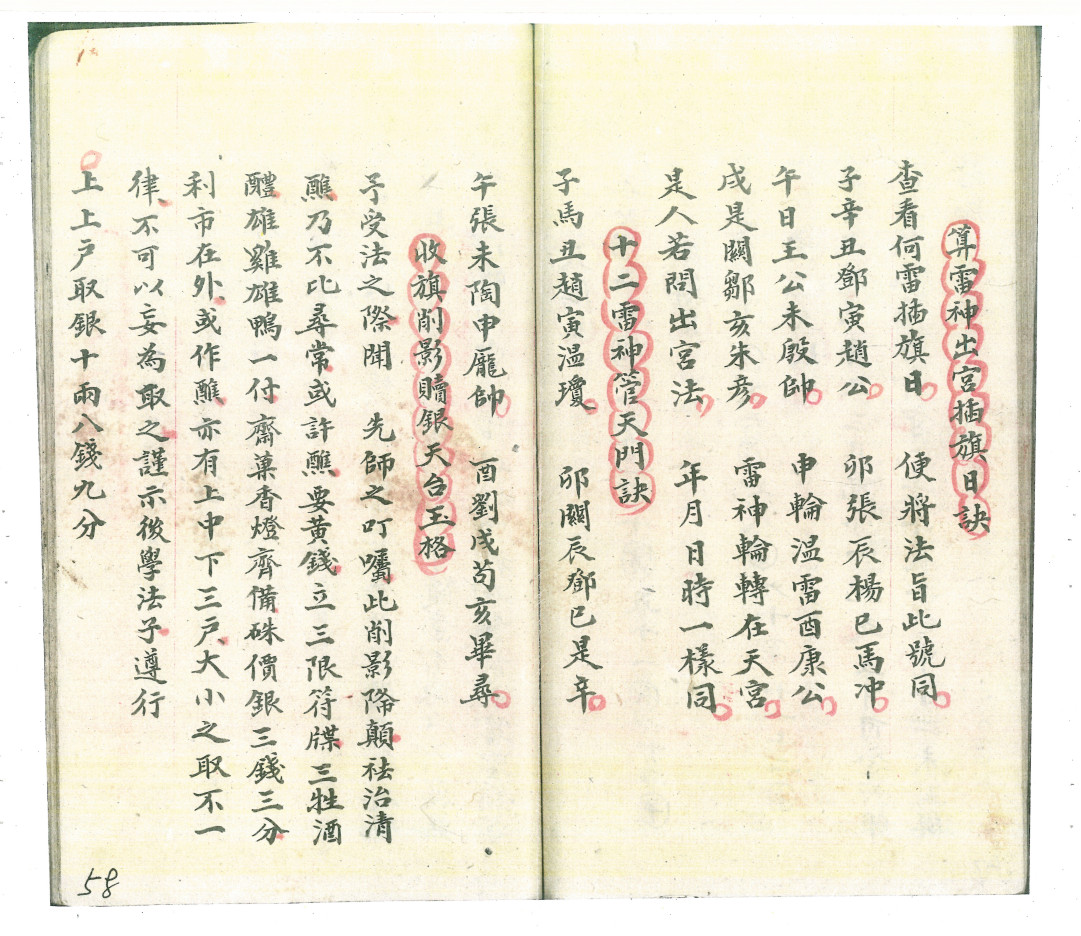 算雷神出宮插旗日訣
查看何雷插旗日 便將法旨此號同
子辛丑鄧寅趙公 卯張辰楊巳馬冲
午日王公未殷帥 申輪温雷酉康公
戌是關鄒亥朱彦 雷神輪轉在天宮
是人若問出宮法 年月日時一樣同
十二雷神管天門訣
子馬丑趙寅温瓊 卯關辰鄧巳是辛
午張未陶申龐帥 酉劉戌苟亥畢尋
收旗削影贖銀天台玉格
予受法之際聞 先師之叮囑此削影降顛祛治清
醮乃不比尋常或許醮要黄錢立三限符牒三牲酒
醴雄雞雄鴨一付齋菓香燈齊備硃價銀三錢三分
利市在外或作醮亦有上中下三戸大小之取不一
律不可以妄為取之謹示後學法子遵行
上上戸取銀十兩八錢九分
58